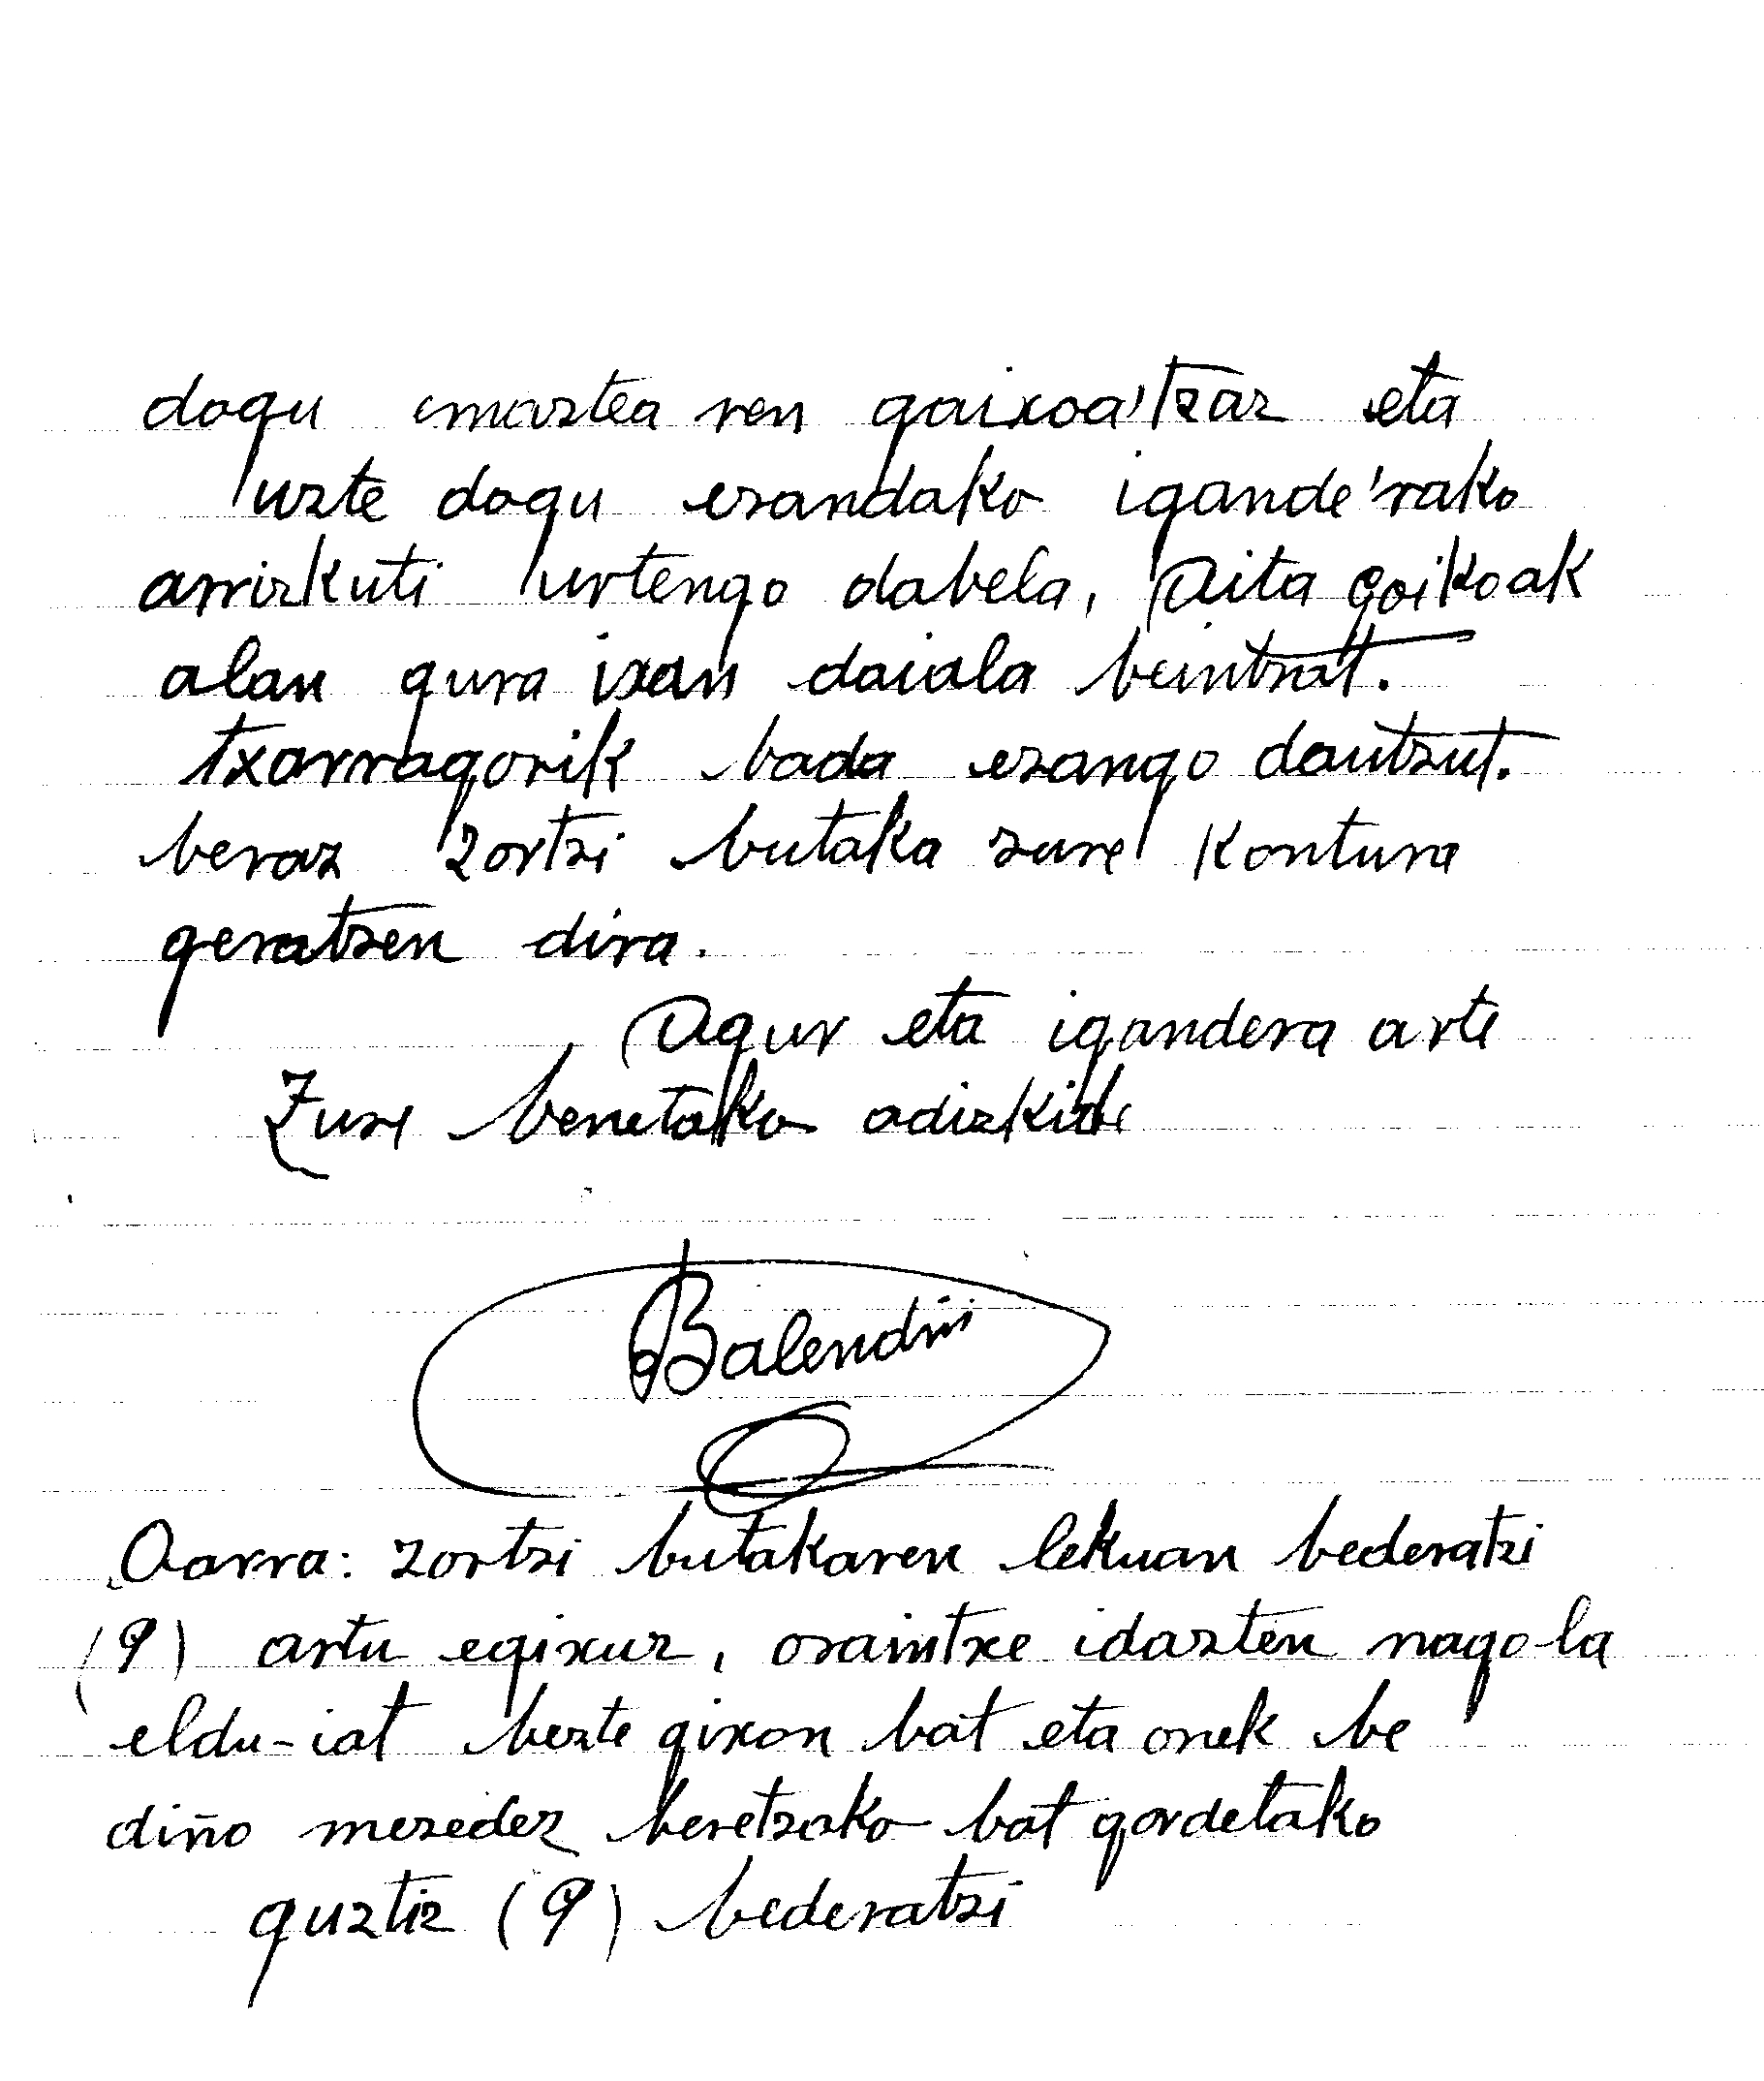 dogu emaztea ren gaixoa'tzaz eta
uzte dogu ezandako igande'rako
arrizkuti urtengo dabela, Aita goikoak
alan gura ixan daiala beintzat.
txarragorik bada ezango dautzut.
beraz zortzi butaka zure kontura
geratzen dira.
Agur eta igandera arte
Zure benetako adizkide
Balendin
Oarra: zortzi butakaren lekuan bederatzi
(9) artu egixuz, oraintxe idazten nago-la
eldu-iat bezte gixon bat eta onek be
diño mezedez beretzako bat gordetako
guztiz (9) bederatzi